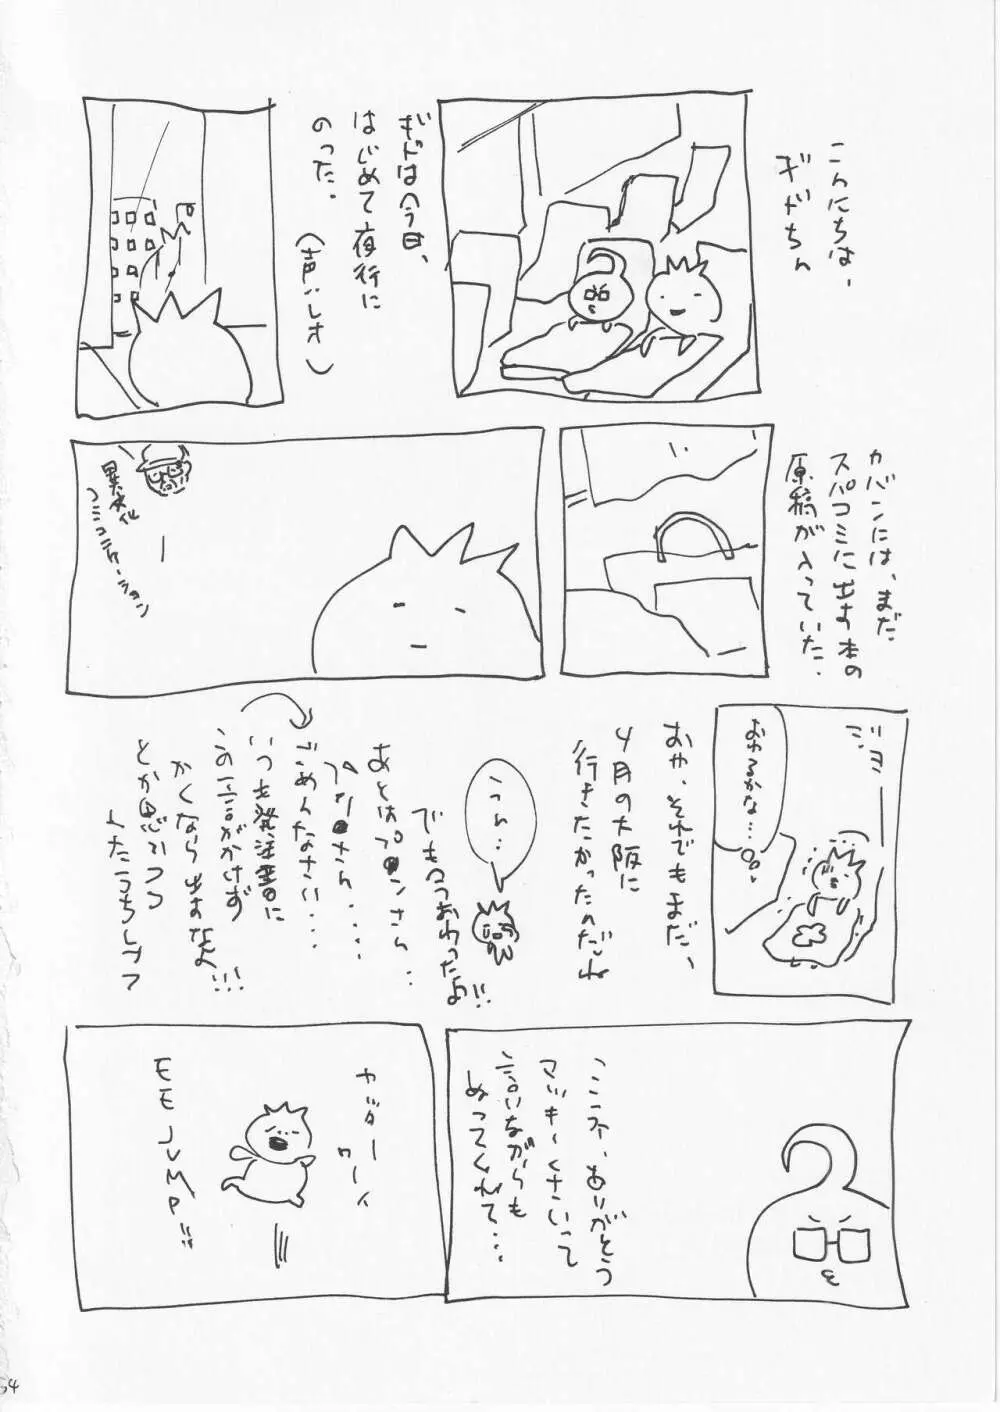 こんにちは、
ギドちん
ギドは今日、
はじめて夜行に
のった。
(声:レオ)
カバンには、まだ
スパコミに出す本の
原稿が入っていた。
コミュニケーション
ジョジョ
おわるかな…
おや、それでもまだ、
4月の大阪に
行きたかったのだね
でも1つおわったよ!!
あとは
ごめんなさい…
いつも発注書に
この一言がかけず
かくなら出すなよ!!!
とか思いつつ
ココア、ありがとう
マッキーくさいって
言いながらも
ぬってくれて…
ヤッター
ワーイ
EE JUMP!!